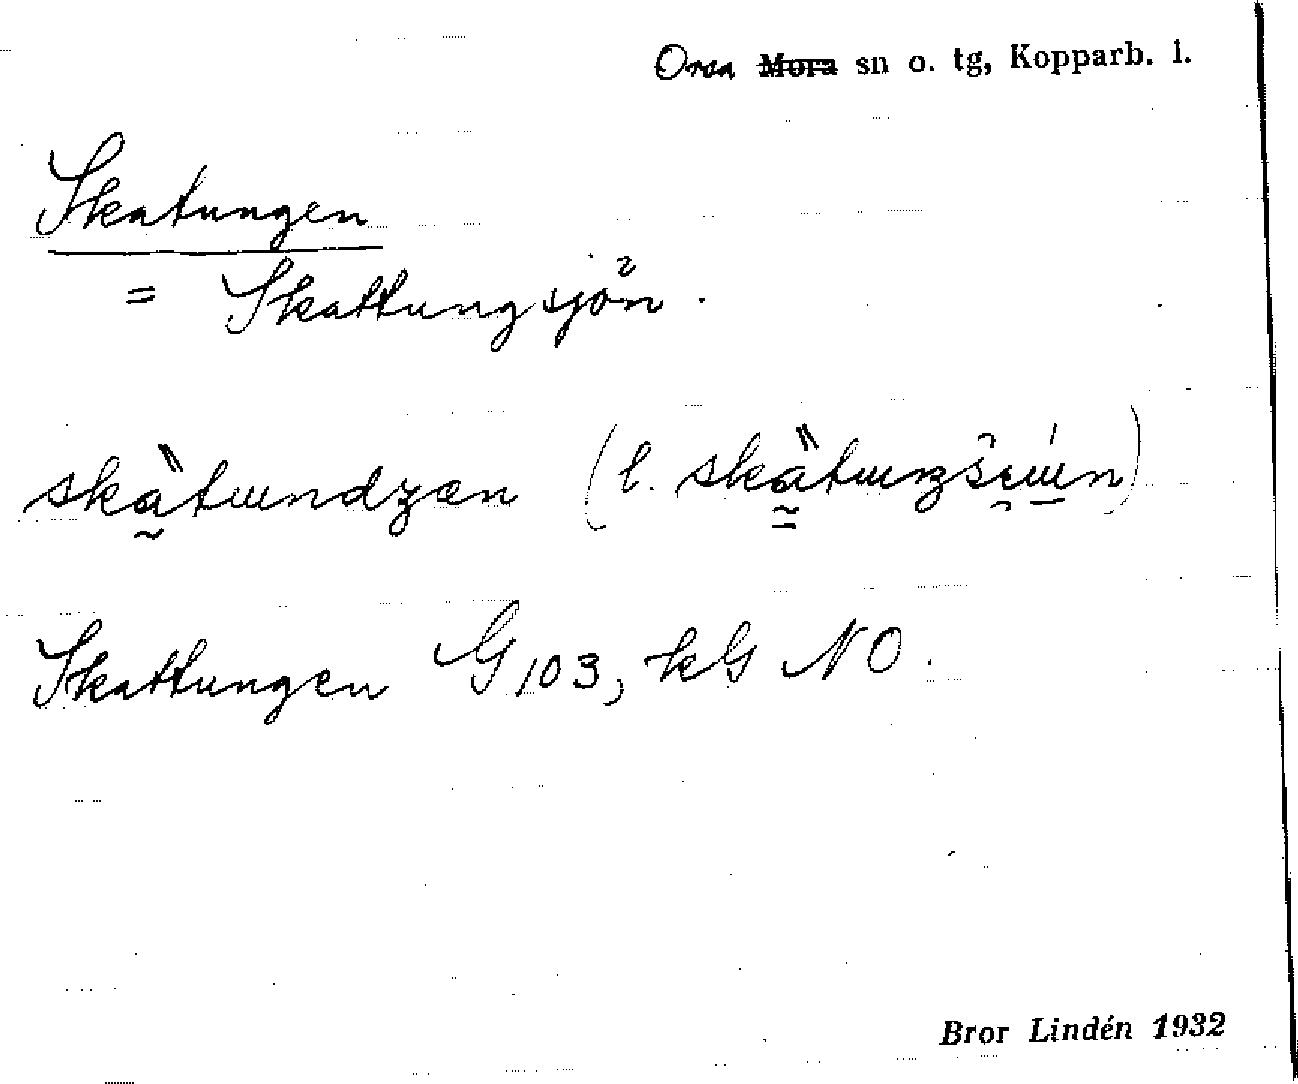 Orsa ~~Mora~~ sn o. tg, Kopparb. l.
Skatungen
= Skattungsjön.
skàtɯndzen (l.
Skattungen G 103, kG NO.
Bror Lindén 1932